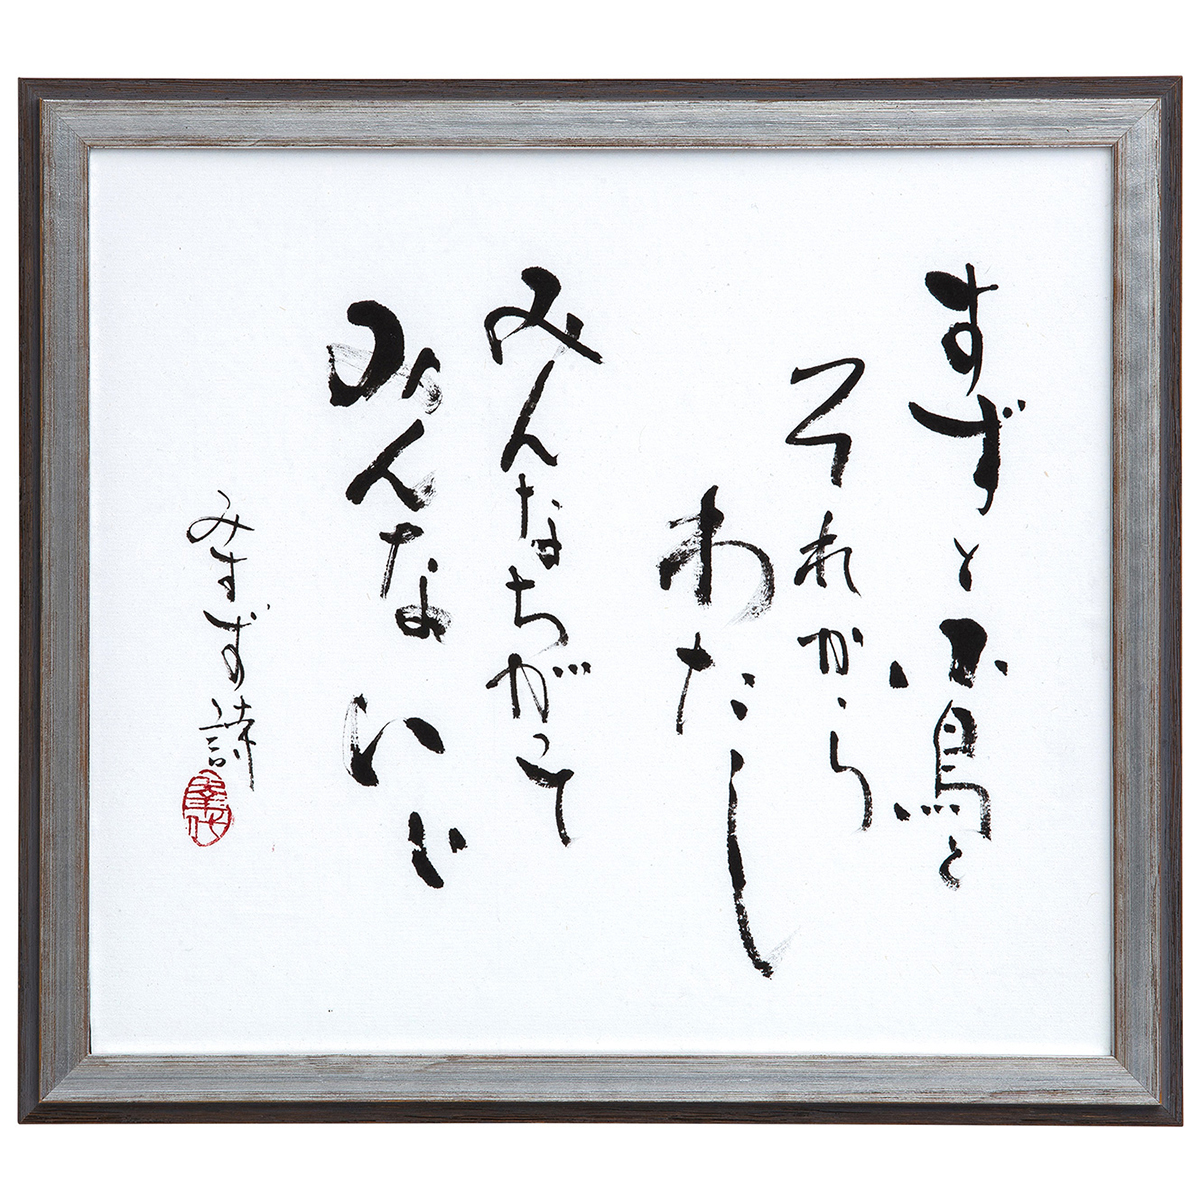 すずと小鳥と
それから
わたし
みんなちがって
みんないい
みすず詩
幸代